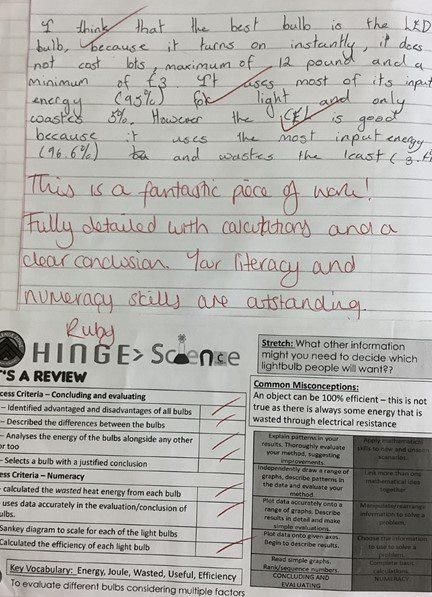 I think that the best bulb is the LED
bulb, because it turns on instantly, it does
not cost lots, maximum of 12 pound and a
minimum of £3. It uses most of its input
energy (95%) for light and only
wastes 5%. However the CFL is good
because it uses the most input energy
(96.6%) and wastes the least (3.
This is a fantastic piece of work!
Fully detailed with calculations and a
clear conclusion. Your literacy and
numeracy skills are outstanding.
Ruby
HINGE> Science
'S A REVIEW
cess Criteria – Concluding and evaluating
– Identified advantaged and disadvantages of all bulbs
– Described the differences between the bulbs
– Analyses the energy of the bulbs alongside any other
or too
– Selects a bulb with a justified conclusion
ess Criteria – Numeracy
calculated the wasted heat energy from each bulb
uses data accurately in the evaluation/conclusion of
ulbs.
Sankey diagram to scale for each of the light bulbs
Calculated the efficiency of each light bulb
Key Vocabulary: Energy, Joule, Wasted, Useful, Efficiency
To evaluate different bulbs considering multiple factors
Stretch: What other information
might you need to decide which
lightbulb people will want??
Common Misconceptions:
An object can be 100% efficient – this is not
true as there is always some energy that is
wasted through electrical resistance
Explain patterns in your
results. Thoroughly evaluate
your method, suggesting
improvements.
Apply mathematical
skills to new and unseen
scenarios.
Independently draw a range of
graphs, describe patterns in
the data and evaluate your
method.
Link more than one
mathematical idea
together
Plot data accurately onto a
range of graphs. Describe
results in detail and make
simple evaluations.
Manipulate/rearrange
information to solve a
problem.
Plot data onto given axes.
Begin to describe results.
Choose the information
to use to solve a
problem.
Read simple graphs.
Rank/sequence numbers.
Complete basic
calculations.
CONCLUDING AND
EVALUATING
NUMERACY